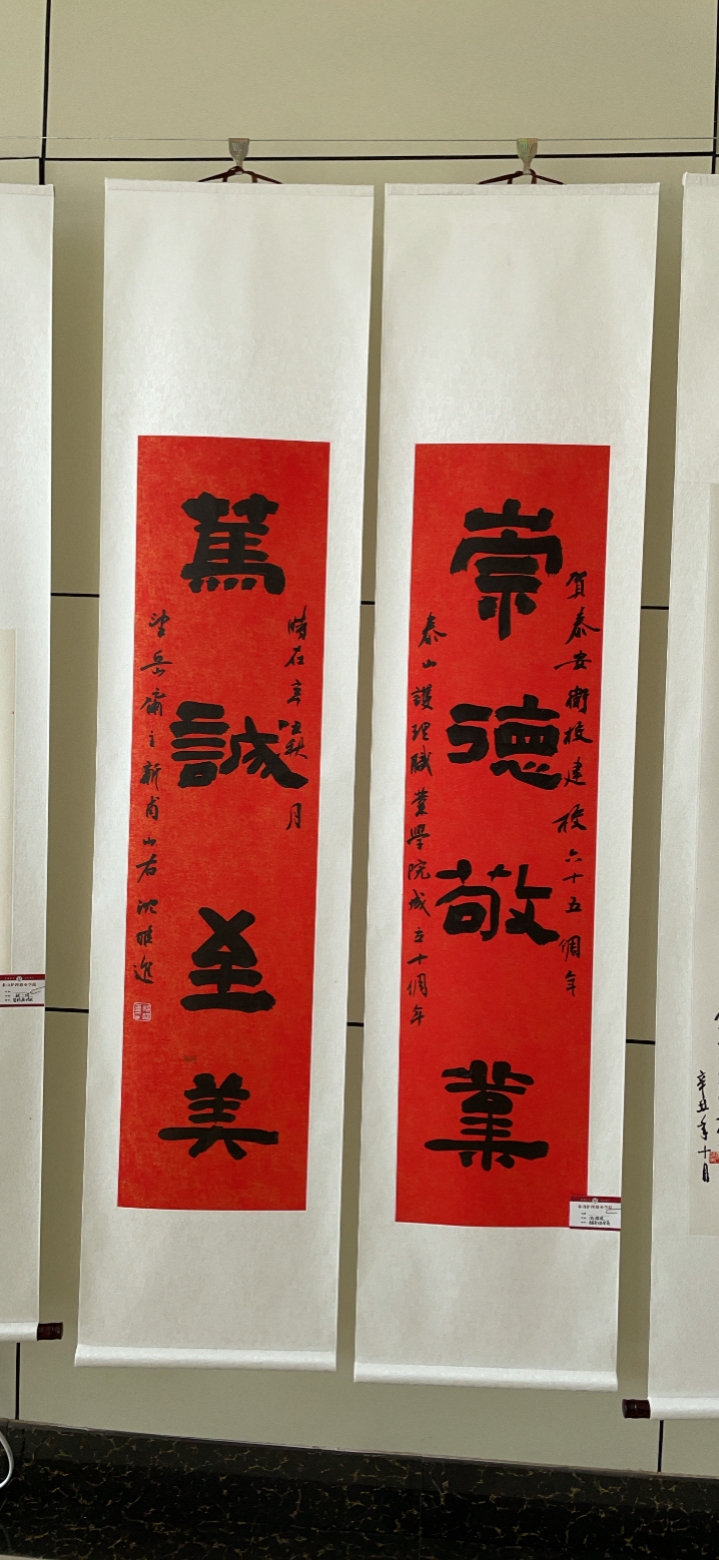 崇德敬業
賀泰安衛校建校六十五個年
泰山護理職業學院成立十個年
篤誠至美
時在辛丑秋月
望岳齋主新甫山右沈維進
辛丑年十月